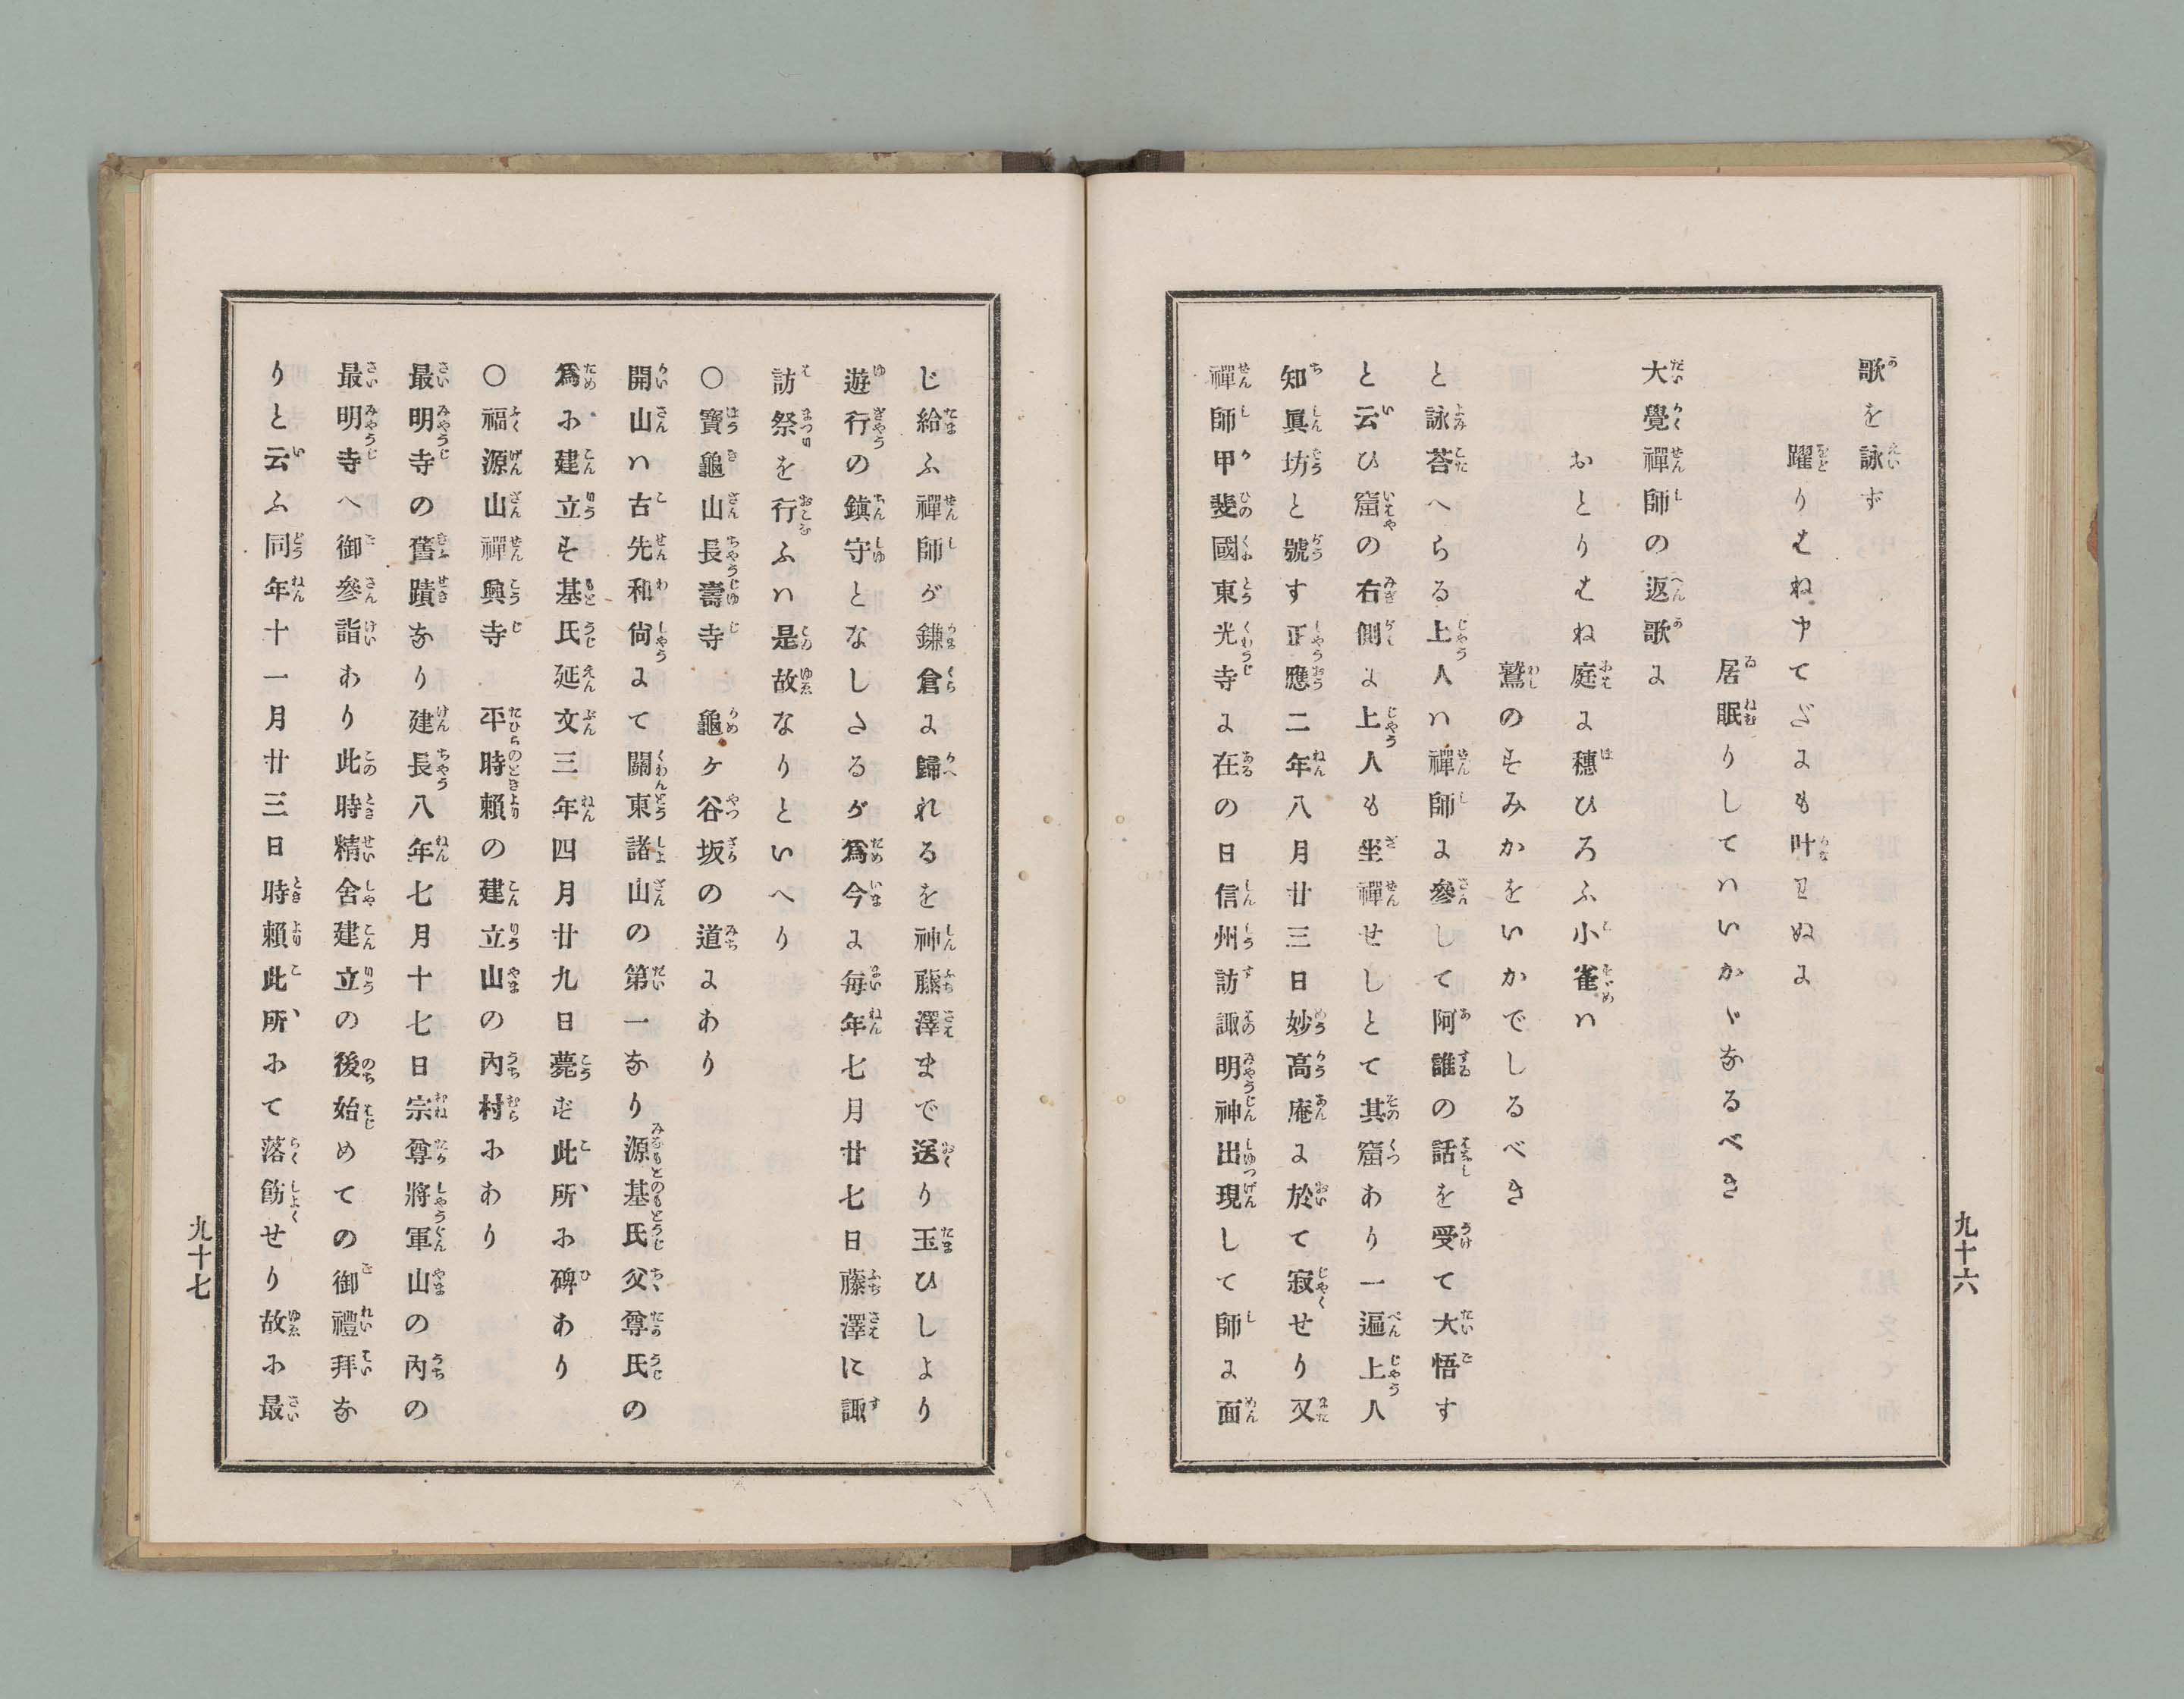 歌を詠ず
躍りはね申てだにも叶はぬに
居眠りしてハいかゞなるべき
大覺禪師の返歌に
おとりはね庭に穗ひろふ小雀ハ
鷲のすみかをいかでしるべき
と詠荅へらる上人ハ禪師に參して阿誰の話を受て大悟す
と云ひ窟の右側に上人も坐禪せしとて其窟あり一遍上人
知眞坊と號す正應二年八月廿三日妙高庵に於て寂せり又
禪師甲斐國東光寺に在の日信州訪諏明神出現して師に面
九十六
じ給ふ禪師が鎌倉に歸れるを神藤澤まで送り玉ひしより
遊行の鎮守となしたるが爲今に毎年七月廿七日藤澤に諏
訪祭を行ふハ是故なりといへり
〇寶龜山長壽寺　龜ヶ谷坂の道にあり
開山ハ古先和尙にて關東諸山の第一なり源基氏父尊氏の
爲に建立す基氏延文三年四月廿九日薨ず此所に碑あり
〇福源山禪興寺　平時賴の建立山の內村にあり
最明寺の舊蹟なり建長八年七月十七日宗尊將軍山の內の
最明寺へ御參詣あり此時精舍建立の後始めての御禮拜な
りと云ふ同年十一月廿三日時賴此所にて落餝せり故に最
九十七